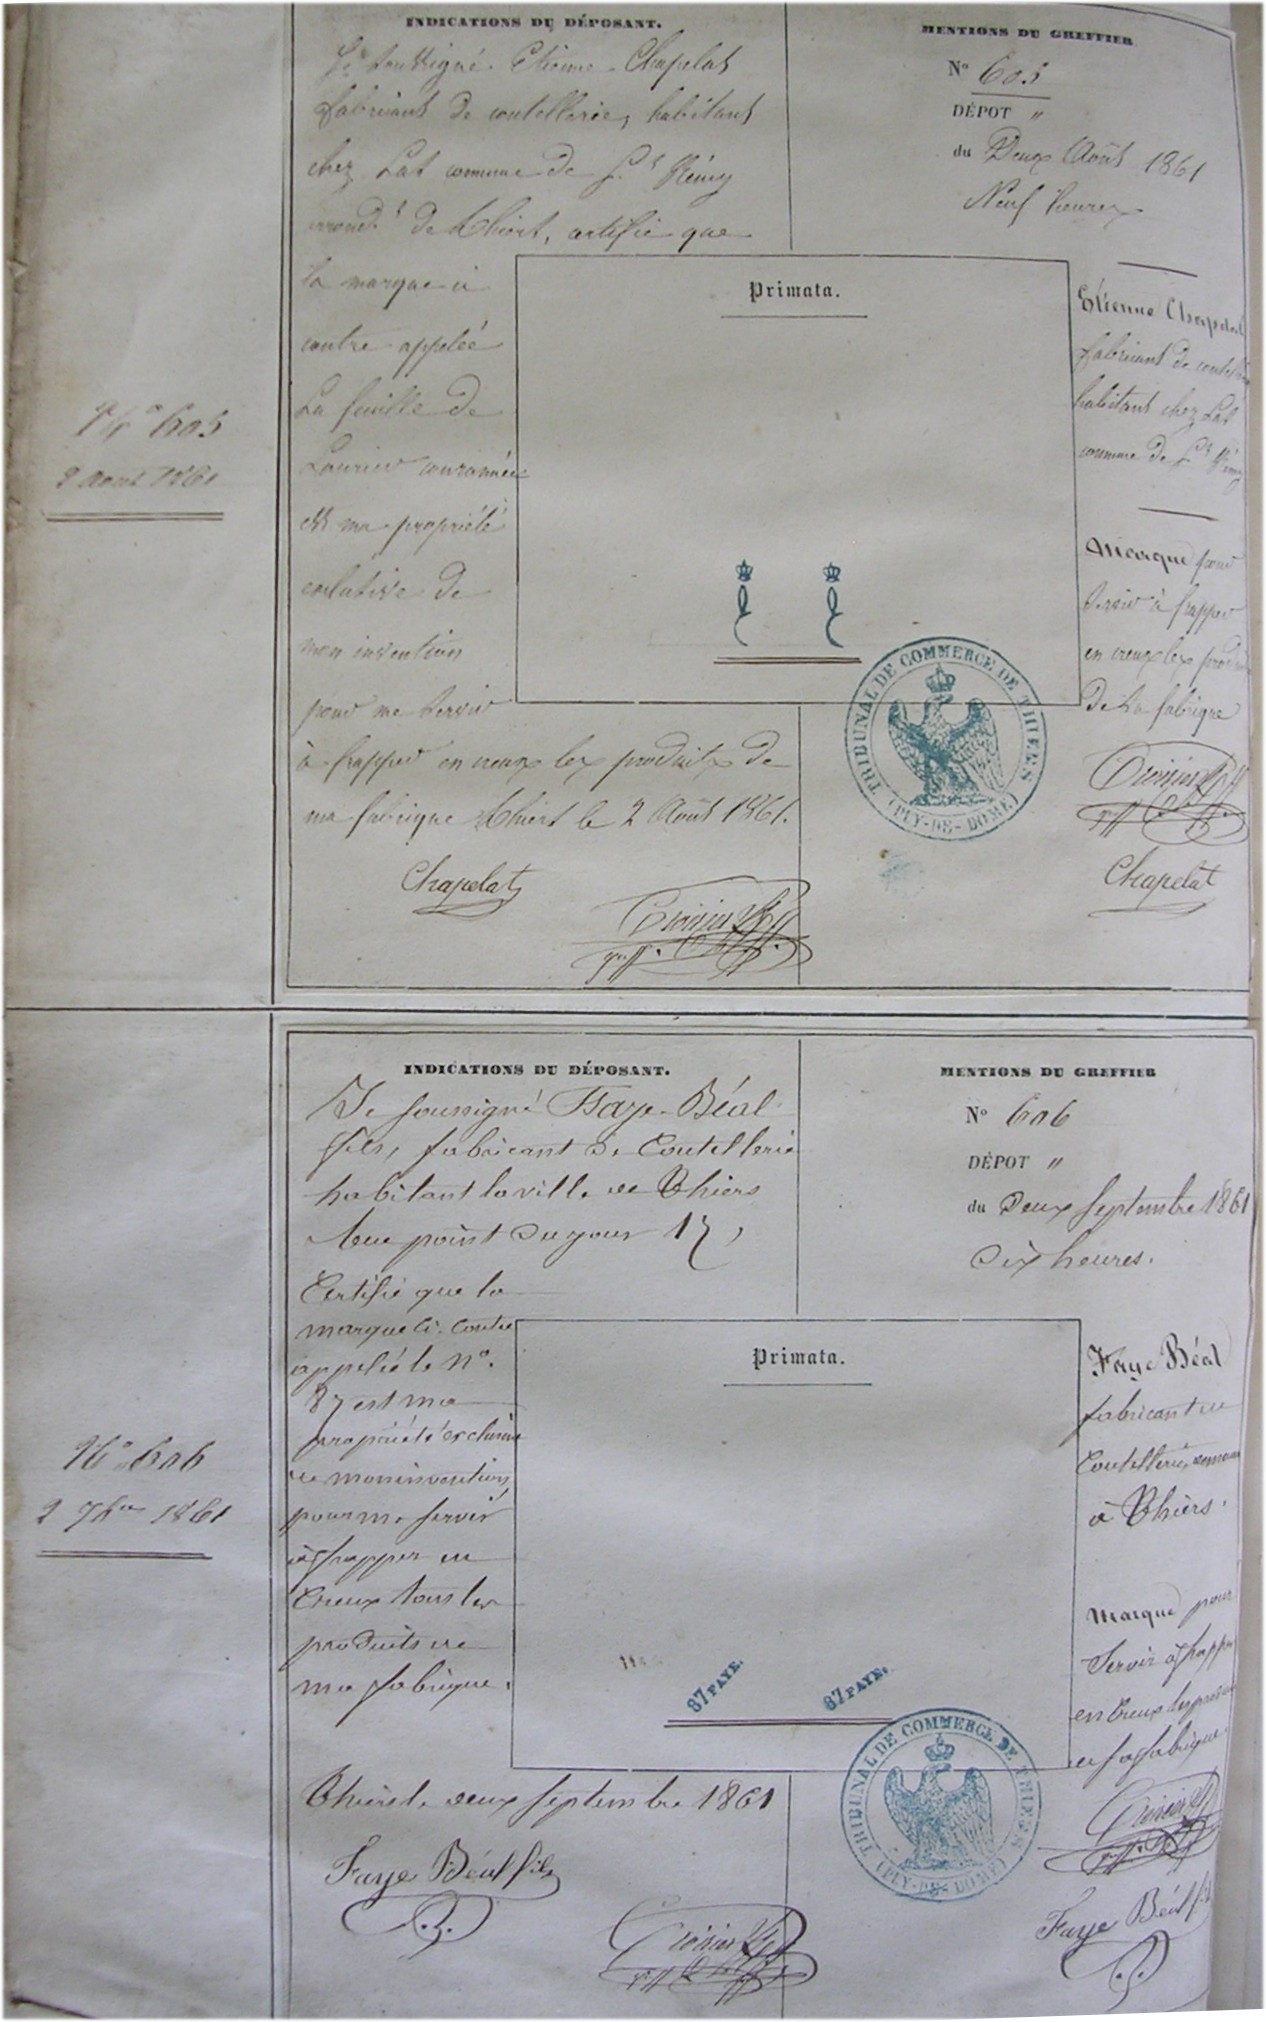 INDICATIONS DU DÉPOSANT.
Je soussigné Etienne Chapelat
fabricant de coutellerie, habitant
chez Lat commune de St Rémy
arrondt de Thiers, certifie que
la marque ci
contre appelée
La feuille de
Laurier couronnée
est ma propriété
exclusive de
mon invention
pour me servir
à frapper en creux les produits de
ma fabrique Thiers le 2 Août 1861.
Chapelat
N° 605
2 aout 1861
MENTIONS DU GREFFIER
N° 605
DÉPOT "
du Deux Août 1861
Neuf heures
Primata.
Etienne Chapelat
fabricant de
habitant chez Lat
commune de St Rémy
Marque pour
servir à frapper
en creux les
de sa fabrique
TRIBUNAL DE COMMERCE DE THIERS
(PUY-DE-DOME)
Chapelat
INDICATIONS DU DÉPOSANT.
Je soussigné Faye-Béal
fils, fabricant de Coutellerie
habitant la ville de Thiers
Rue point du jour 17,
Certifie que la
marque ci-contre
appelée le N°.
87 est ma
propriété exclusive
de mon invention,
pour me servir
à frapper en
Creux tous les
produits de
ma fabrique.
Thiers le deux septembre 1861
Faye Béal fils
N° 606
2 7bre 1861
MENTIONS DU GREFFIER
N° 606
DÉPOT "
du Deux septembre 1861
Dix heures.
Primata.
87 FAYE.
87 FAYE.
Faye Béal
fabricant de
Coutellerie,
à Thiers.
Marque pour
servir à frapper
en Creux
de sa fabrique
TRIBUNAL DE COMMERCE DE THIERS
(PUY-DE-DOME)
Faye Béal fils